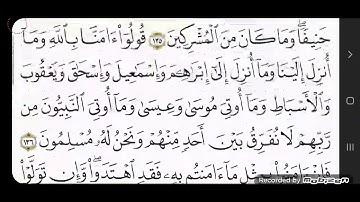 حَنِيفًا ۖ وَمَا كَانَ مِنَ ٱلْمُشْرِكِينَ ١٣٥ قُولُوٓا۟ ءَامَنَّا بِٱللَّهِ وَمَآ
أُنزِلَ إِلَيْنَا وَمَآ أُنزِلَ إِلَىٰٓ إِبْرَٰهِـۧمَ وَإِسْمَٰعِيلَ وَإِسْحَٰقَ وَيَعْقُوبَ
وَٱلْأَسْبَاطِ وَمَآ أُوتِىَ مُوسَىٰ وَعِيسَىٰ وَمَآ أُوتِىَ ٱلنَّبِيُّونَ مِن
رَّبِّهِمْ لَا نُفَرِّقُ بَيْنَ أَحَدٍ مِّنْهُمْ وَنَحْنُ لَهُۥ مُسْلِمُونَ ١٣٦
فَإِنْ ءَامَنُوا۟ بِمِثْلِ مَآ ءَامَنتُم بِهِۦ فَقَدِ ٱهْتَدَوا۟ ۖ وَّإِن تَوَلَّوْا۟
Recorded by
mobizen